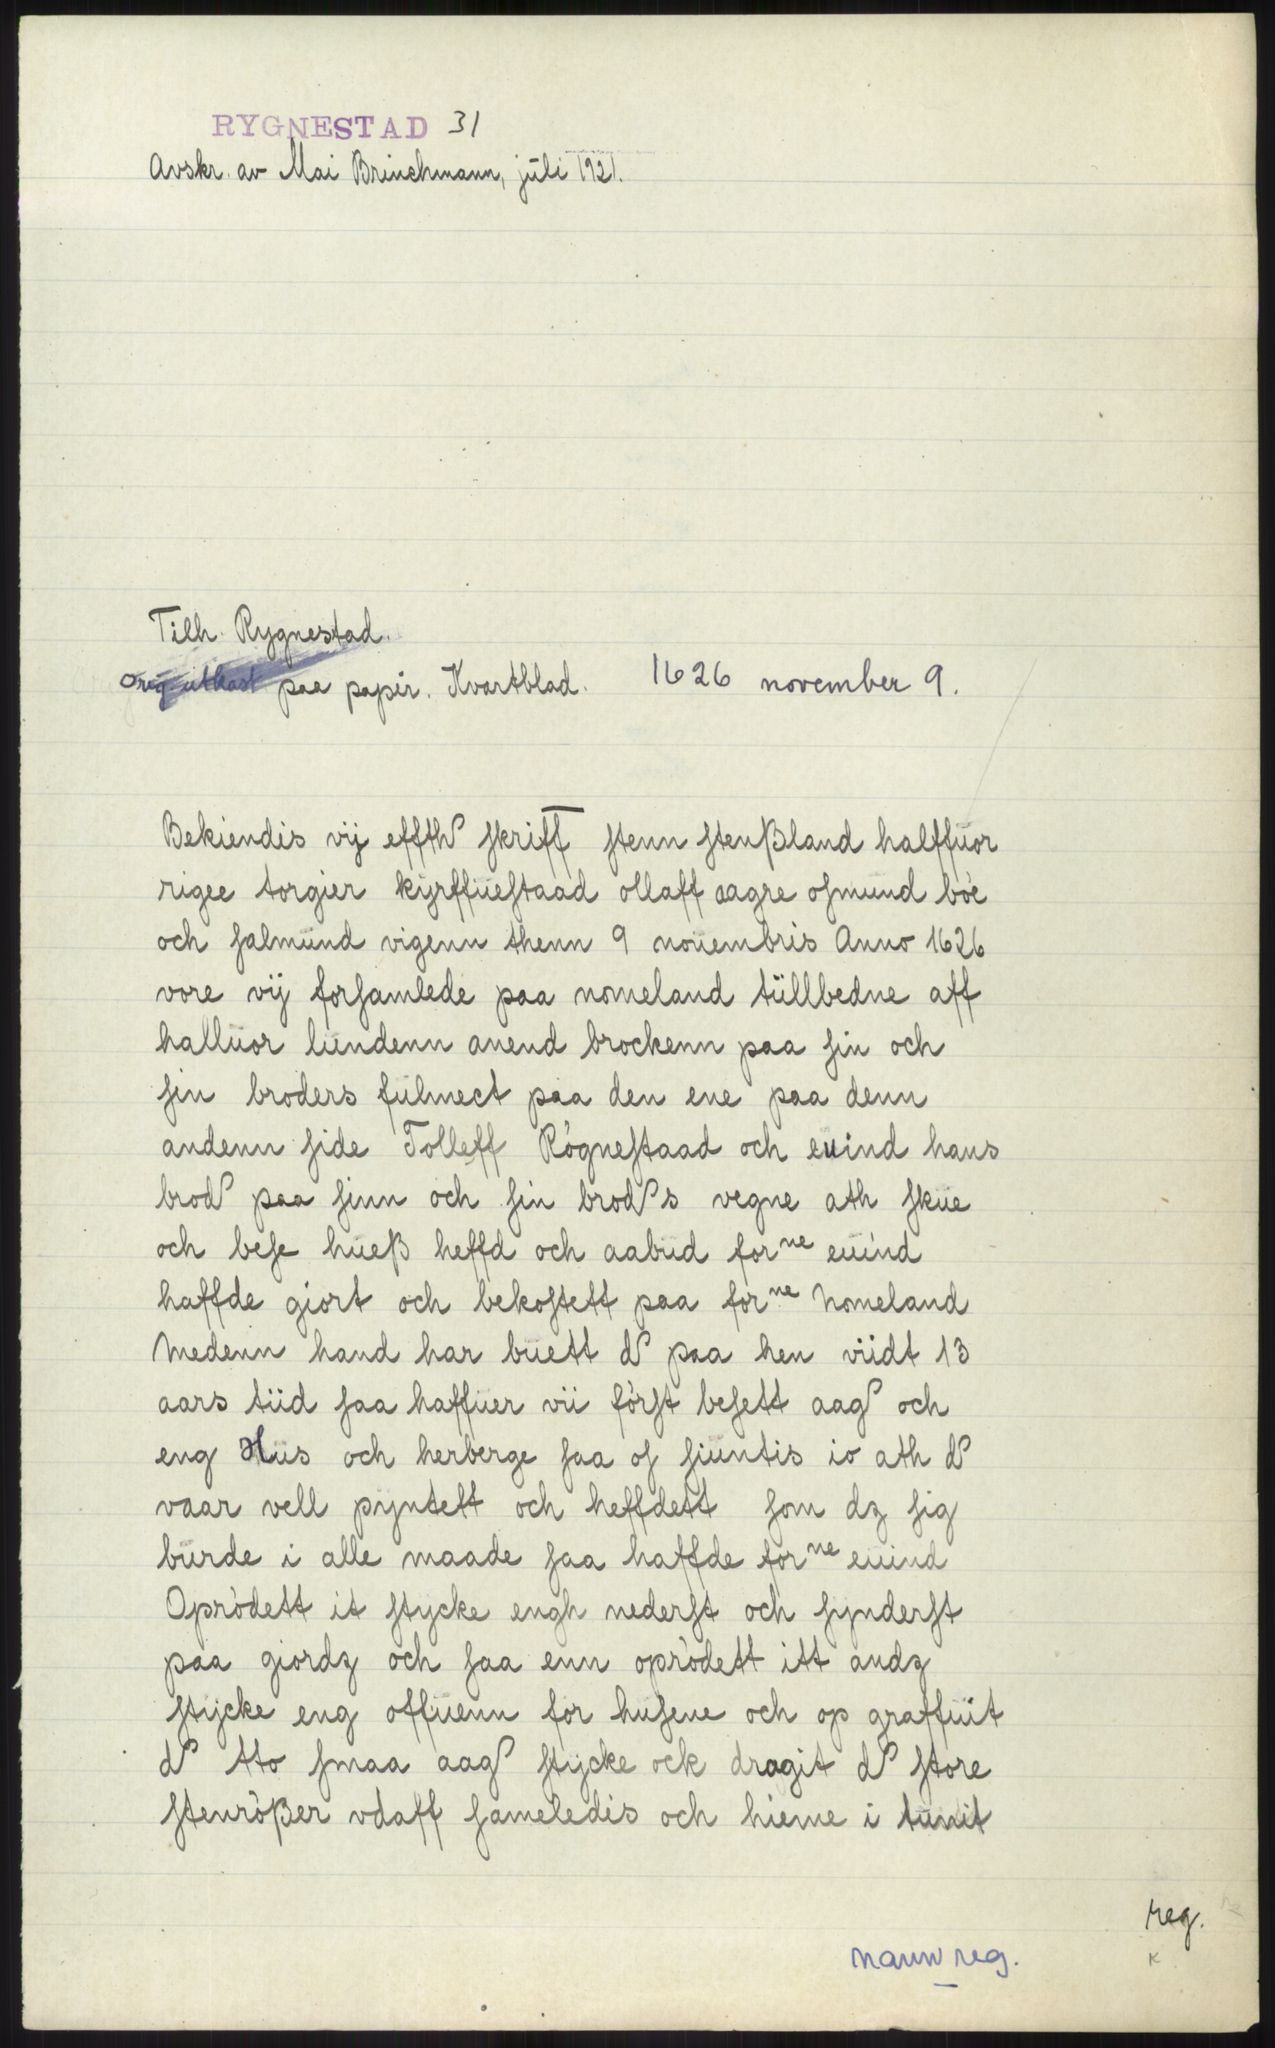 RYGNESTAD 31
Avskr. av Mai Brinchmann, juli 1921.
Tilh. Rygnestad.
Orig. utkast paa papir. Kvartblad. 1626 november 9.
Bekiendis vij effth skriff ſtenn ſtenßland halffuor
rigee torgier kyrffueſtaad ollaff aagre oſmund böe
och ſalmund vigenn thenn 9 nouembris Anno 1626
vore vij forſamlede paa nomeland tüllbedne aff
halluor lundenn anend brockenn paa ſin och
ſin broders fulmect paa den ene paa denn
andenn ſide Tolleff Rögneſtaad och euind hans
brod paa ſinn och ſin brods vegne ath ſkue
och beſe hueß heffd och aabud forne euind
haffde giort och bekoſtett paa forne Nomeland
Medenn hand har buett d paa hen viidt 13
aars tiid ſaa haffuer vii förſt beſett aag och
eng Hus och herberge ſaa oſ ſiuntis io ath d
vaar vell pyntett och heffdett ſom dz ſig
burde i alle maade ſaa haffde forne euind
Oprödett it ſtycke engh nederſt och ſynderſt
paa giordz och ſaa enn oprödett itt andz
ſtycke eng offuenn for huſene och op graffuit
d tto ſmaa aag ſtycke ock dragit d ſtore
ſtenrößer vdaff ſameledis och hieme i tunit
reg.
navn reg.
K